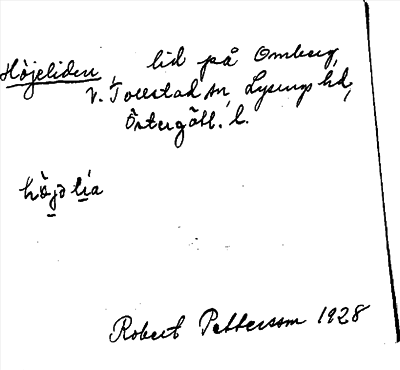 Höjeliden, lid på Omberg,
V. Tollstad sn, Lysings hd,
Östergötl. l.
hö̀jə lía
Robert Pettersson 1928